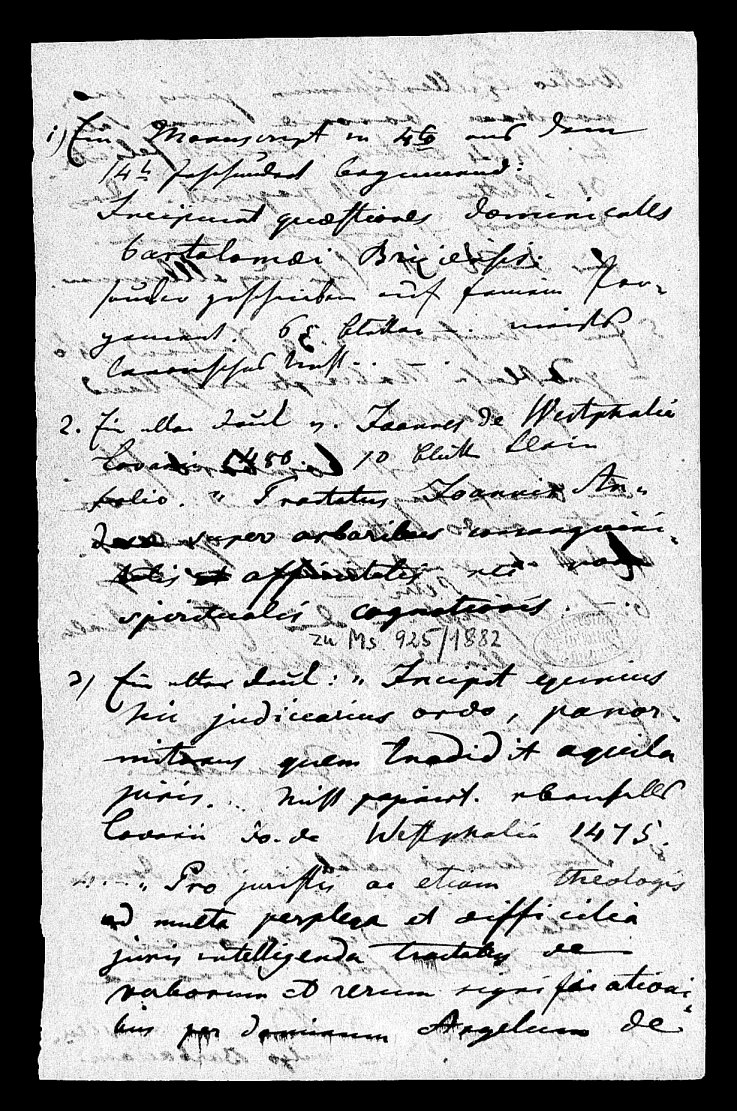 1) Ein Manuscript in 4to aus dem
14t Jahrhundert beginnend:
Incipiunt quæstiones dominicales
bartolomæi Brixiensis.
sauber geschrieben auf feinem Per-
gament. 68 blätter.
canonisches
2. Ein alter Druck v. Joannes de Westphalia
Lovanii 1480. 10 blätt klein
folio. " Tractatus Joannis An-
super arboribus consanguini-
tatis et affinitatis
spiritualis cognationis.
zu Ms. 925/1882
3) Ein alter Druck: " Incipit egrerius
hic judicarius ordo, panor-
mitanus quem tradidit aquila
juris. ebenfalls
Lovanii Jo. de Westphalia 1475.
" Pro juristis ac etiam theologis
ad multa perplexa et difficilia
juris intelligenda tractatus de
verborum et rerum significationi-
bus per dominum Angelum de